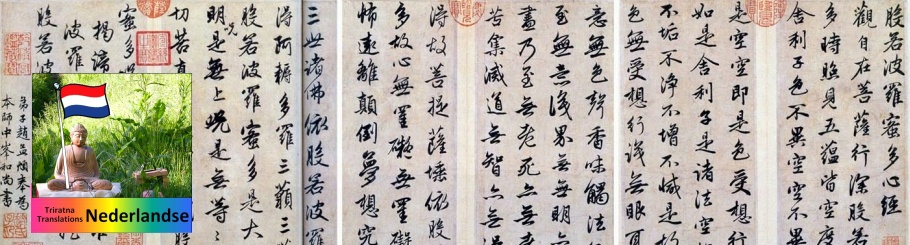 般若波羅蜜多心經
觀自在菩薩行深般若
多時照見五蘊皆空度
舍利子色不異空空不
是空即是色受想行
如是舍利子是諸法空
不垢不淨不增不減是
色無受想行識無眼
意無色聲香味觸法
至無意識界無無明
盡乃至無老死亦無
苦集滅道無智亦無
得故菩提薩埵依般
多故心無罣礙無罣礙
怖遠離顛倒夢想究
三世諸佛依般若波羅
得阿耨多羅三藐三
般若波羅蜜多是大
明咒是無上咒是無等
切苦真
蜜多
揭諦
波羅
般若
弟子趙孟頫奉為
本師中峯和尚書
Triratna
Translations
Nederlandse